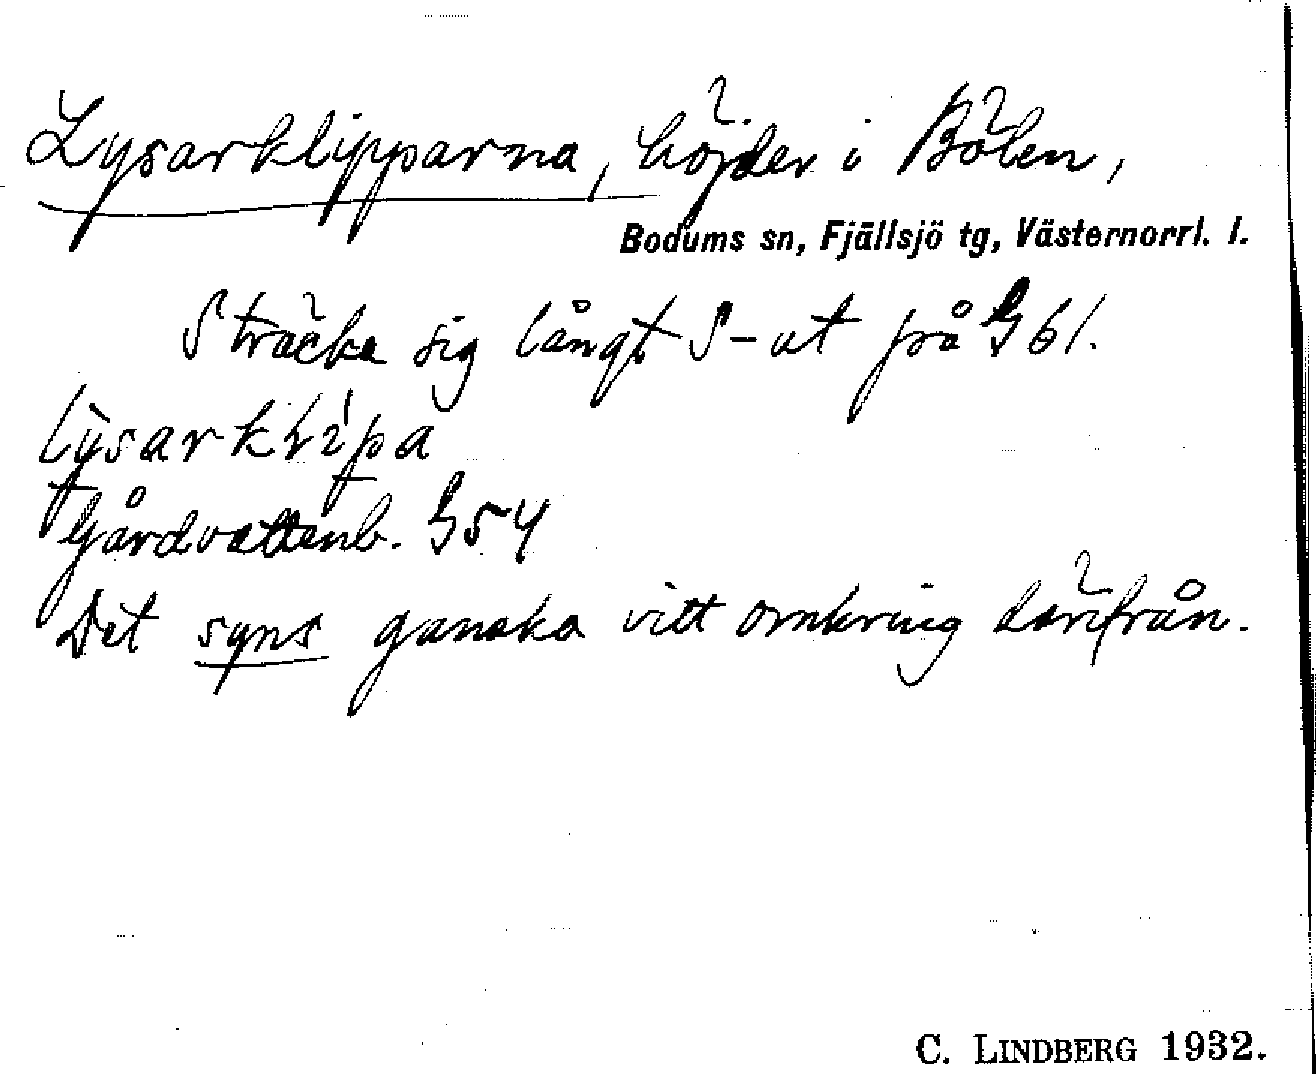 Lysarklipparna, höjder i Bölen,
Bodums sn, Fjällsjö tg, Västernorrl. l.
Sträcka sig långt S-ut på G 61.
lysarklipa
Gårdvattenb. G 54
Det syns ganska vitt omkring därifrån.
C. LINDBERG 1932.